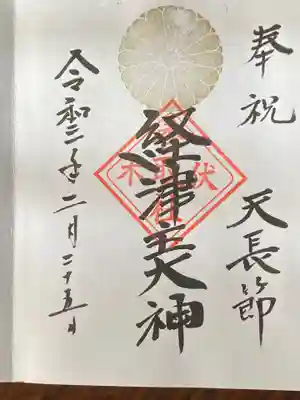 奉祝 天長節
経津主大神
伏木
令和三年二月二十五日